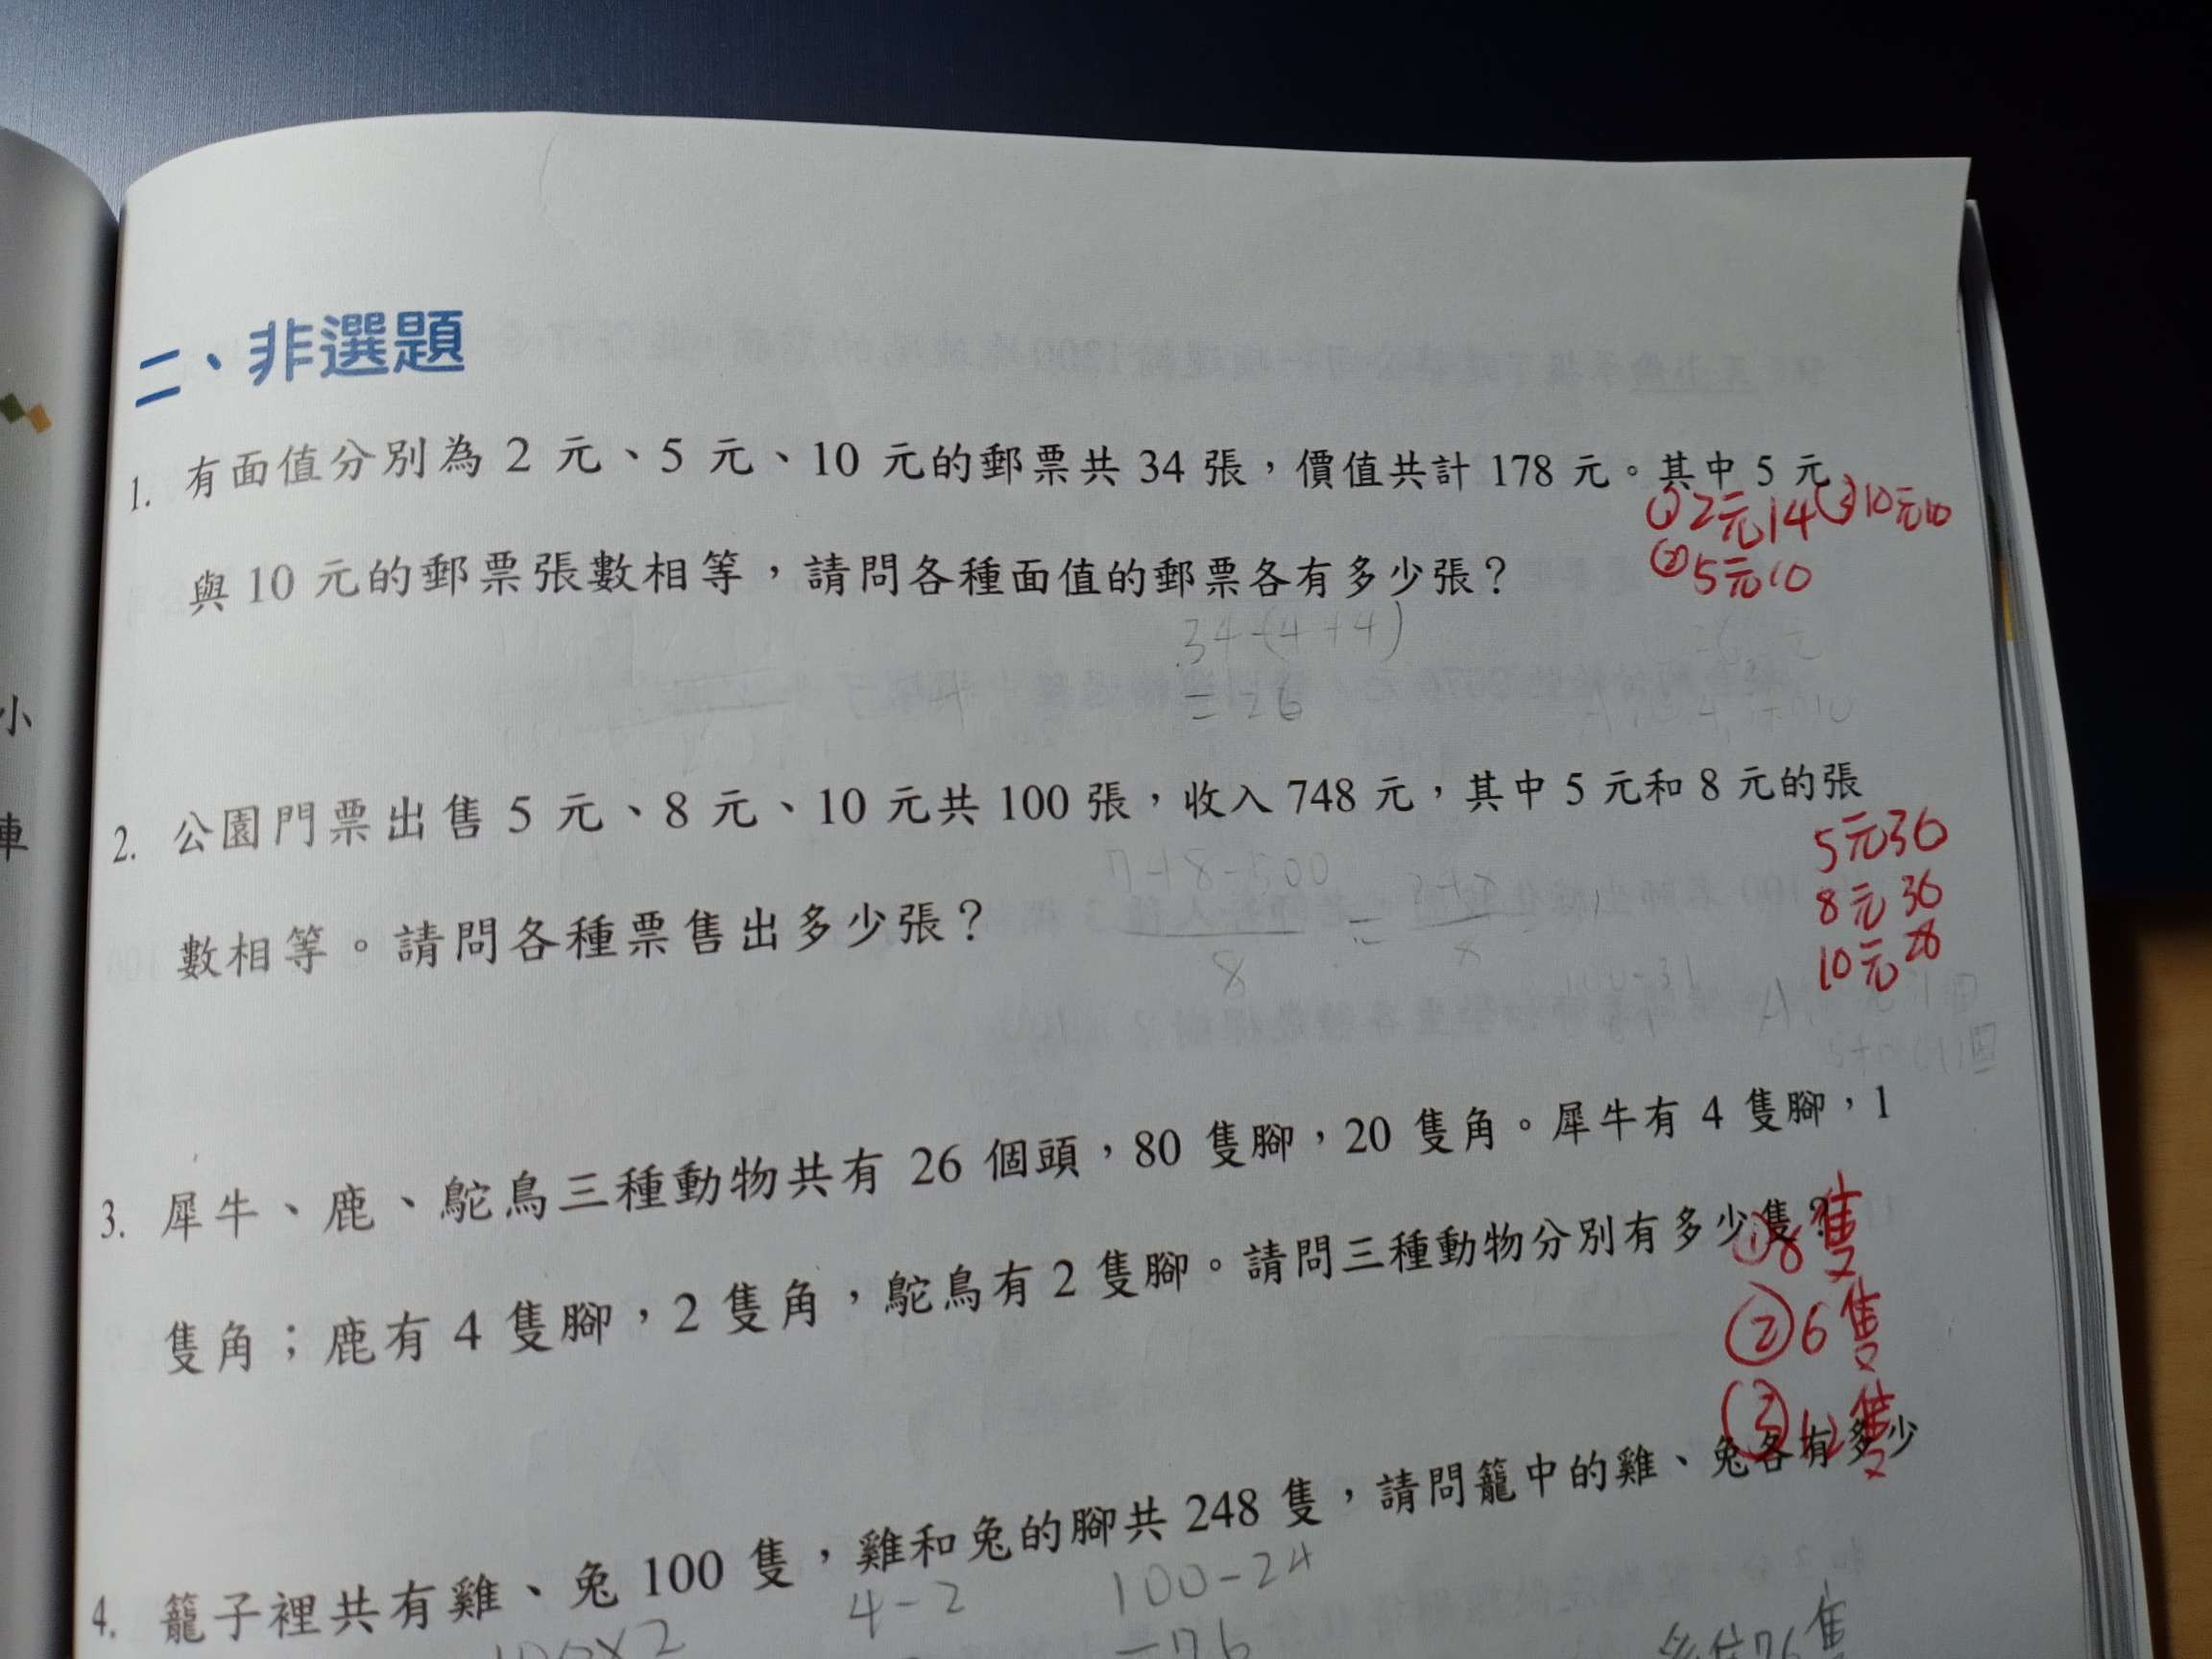 二、非選題
1. 有面值分別為 2 元、5 元、10 元的郵票共 34 張，價值共計 178 元。其中 5 元
①2元14 ③10元10
與 10 元的郵票張數相等，請問各種面值的郵票各有多少張？
②5元10
34-(4+4)
=26
2. 公園門票出售 5 元、8 元、10 元共 100 張，收入 748 元，其中 5 元和 8 元的張
5元36
748-500
8元36
數相等。請問各種票售出多少張？
8
10元28
3. 犀牛、鹿、鴕鳥三種動物共有 26 個頭，80 隻腳，20 隻角。犀牛有 4 隻腳，1
隻角；鹿有 4 隻腳，2 隻角，鴕鳥有 2 隻腳。請問三種動物分別有多少隻？
①8隻
②6隻
③12隻
4. 籠子裡共有雞、兔 100 隻，雞和兔的腳共 248 隻，請問籠中的雞、兔各有多少
4-2
100-24
100×2
=76
76隻
小
車